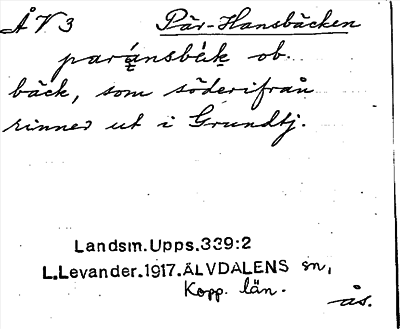 ÅV3 Pär-Hansbäcken
paránsbäk ob.
bäck, som söderifrån
rinner ut i Grundtj.
Landsm.Upps.339:2
L.Levander.1917.ÄLVDALENS sn,
Kopp. län.
ås.